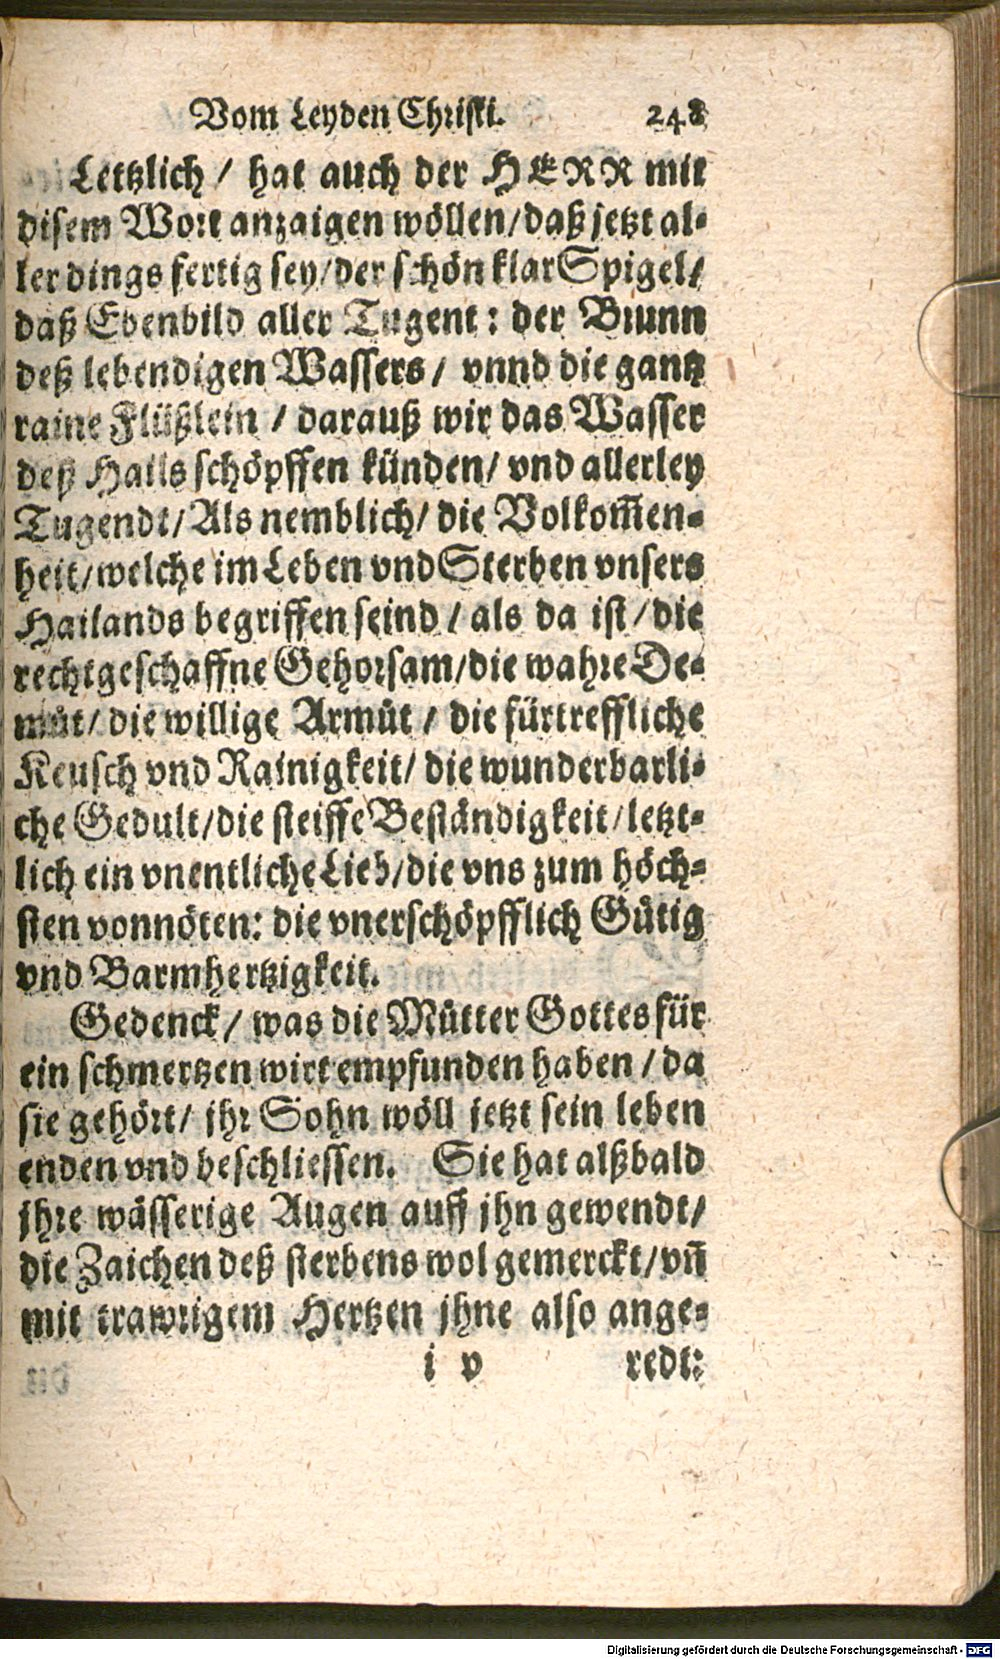 Vom Leyden Christi. 248
Letzlich / hat auch der HERR mit
disem Wort anzaigen wöllen/daß jetzt al-
ler dings fertig sey/der schön klar Spigel/
daß Ebenbild aller Tugent: der Brunn
deß lebendigen Wassers/ vnnd die gantz
raine Flüßlein / darauß wir das Wasser
deß Hails schöpffen künden/ vnd allerley
Tugendt/Als nemblich/ die Volkom̃en-
heit/welche im Leben vnd Sterben vnsers
Hailands begriffen seind / als da ist / die
rechtgeschaffne Gehorsam/die wahre De-
můt/ die willige Armůt / die fürtreffliche
Keusch vnd Rainigkeit/ die wunderbarli-
che Gedult/die steiffe Beständigkeit/letzt-
lich ein vnentliche Lieb/die vns zum höch-
sten vonnöten: die vnerschöpfflich Gütig
vnd Barmhertzigkeit.
Gedenck/ was die Můtter Gottes für
ein schmertzen wirt empfunden haben / da
sie gehört/ jhr Sohn wöll jetzt sein leben
enden vnd beschliessen. Sie hat alßbald
jhre wässerige Augen auff jhn gewendt/
die Zaichen deß sterbens wol gemerckt/vñ
mit trawrigem Hertzen jhne also ange-
i v redt:
Digitalisierung gefördert durch die Deutsche Forschungsgemeinschaft - DFG